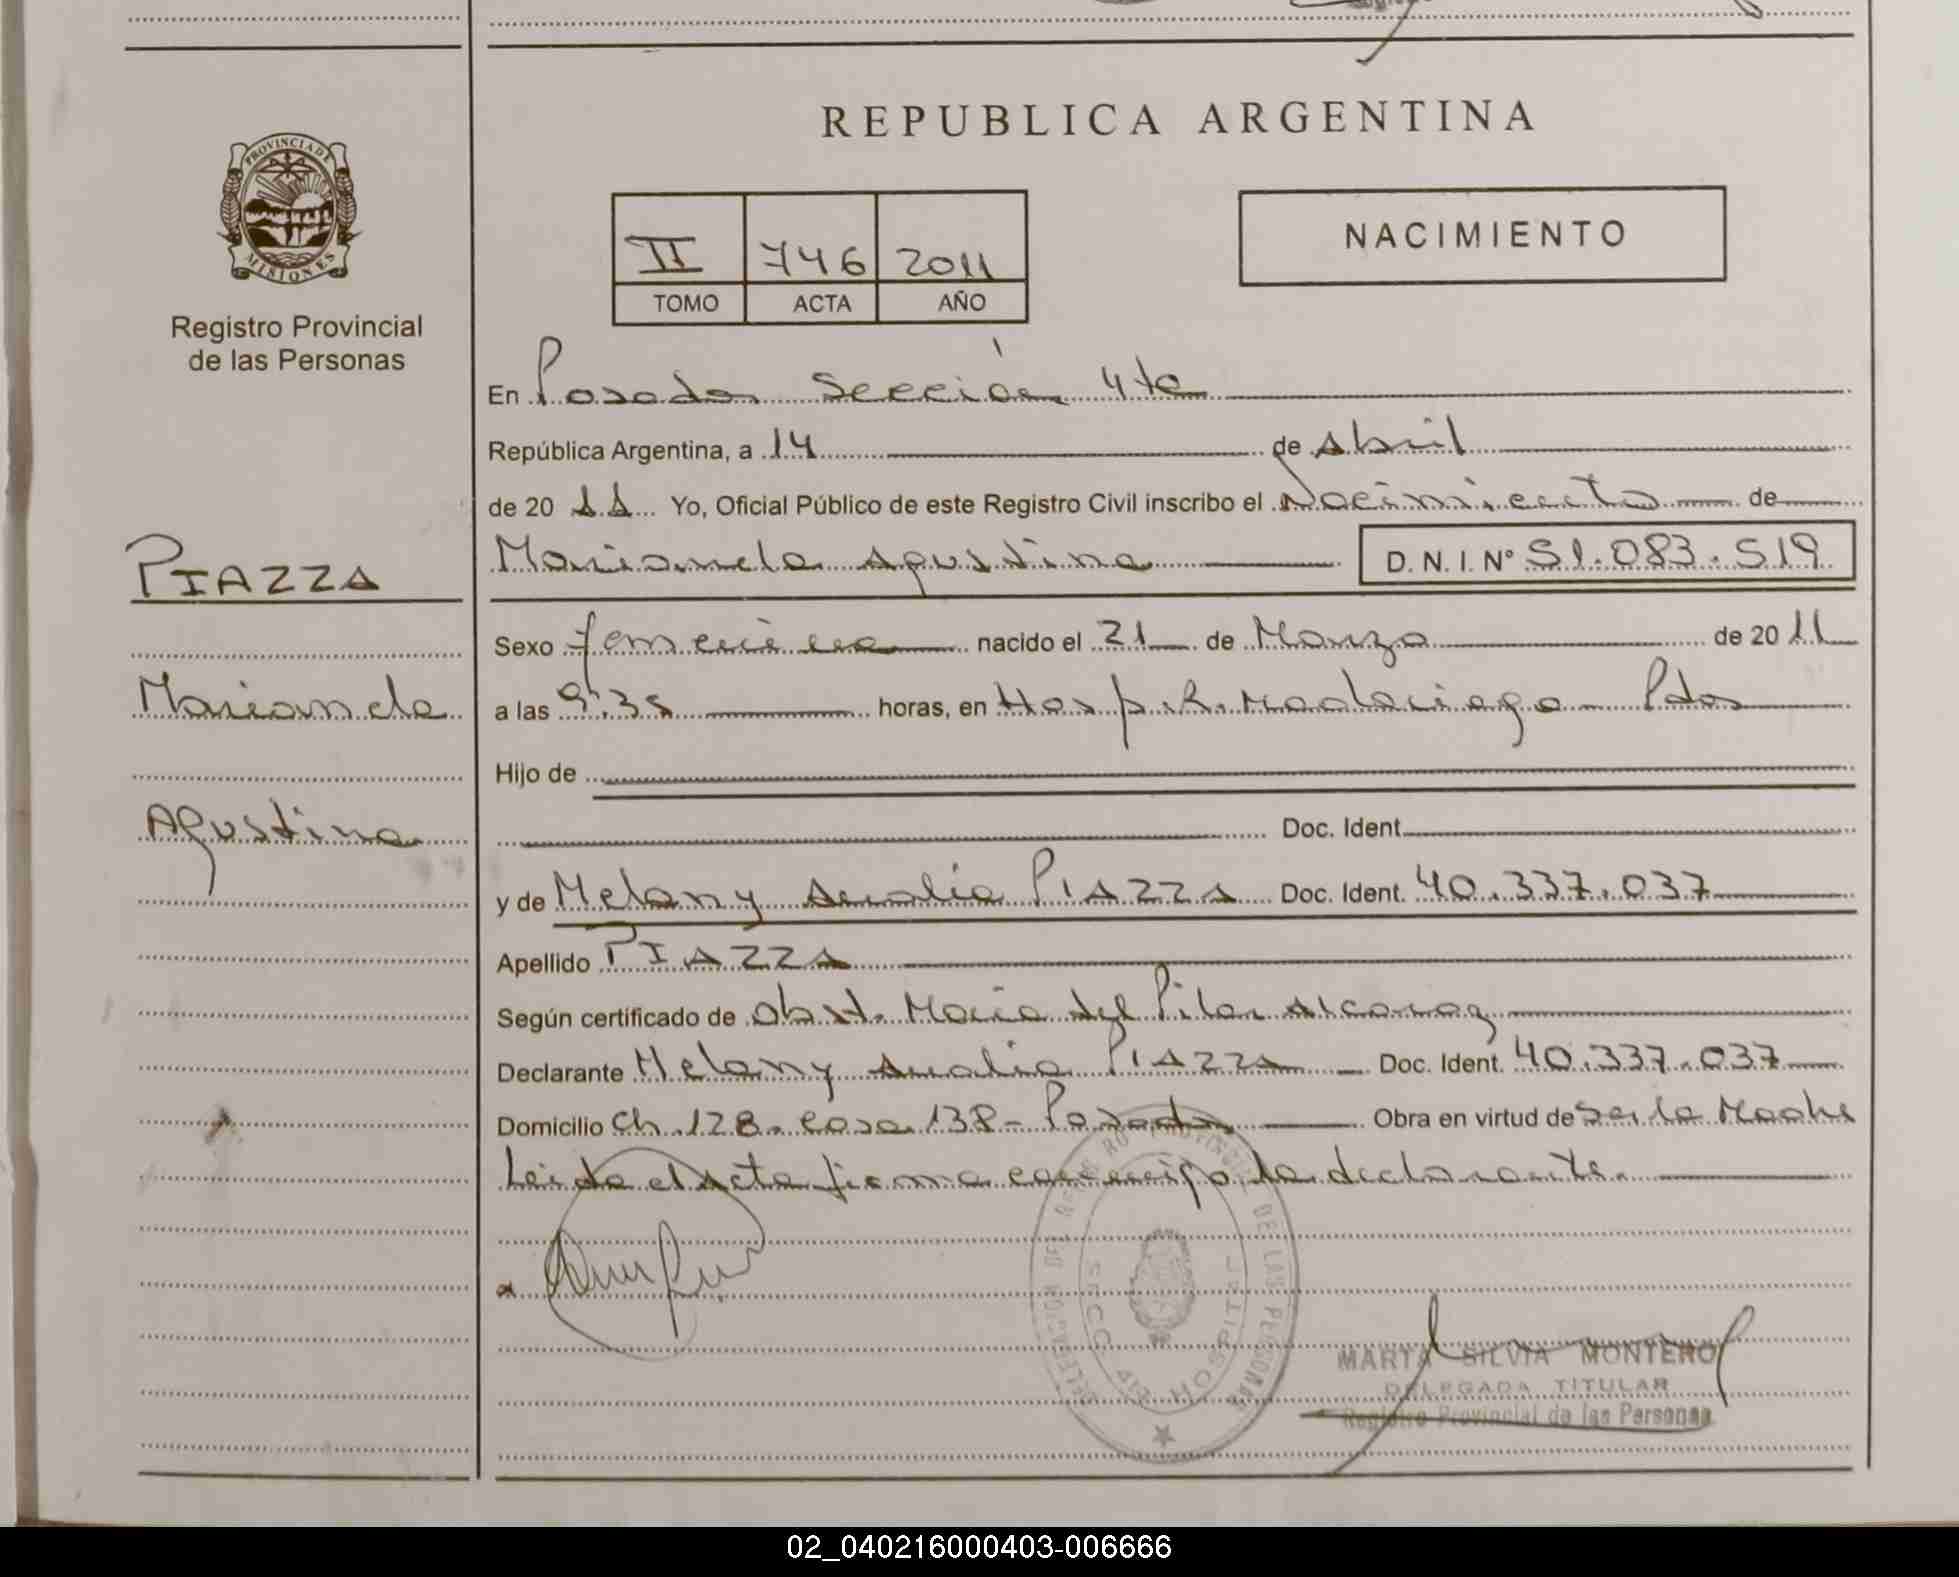 REPUBLICA ARGENTINA
PROVINCIA DE
MISIONES
Registro Provincial
de las Personas
II 746 2011
TOMO ACTA AÑO
NACIMIENTO
En Posadas Sección 4ta
República Argentina, a 14 de Abril
de 20 11 Yo, Oficial Público de este Registro Civil inscribo el Nacimiento de
PIAZZA
Marianela Agustina
D. N. I. Nº 51.083.519
Sexo femenino nacido el 21 de Marzo de 20 11
Marianela
a las 9:35 horas, en Hosp. R. Madariaga Pdas
Hijo de
Agustina
Doc. Ident.
y de Melany Analía PIAZZA Doc. Ident. 40.337.037
Apellido PIAZZA
Según certificado de Obst. María del Pilar Alcaraz
Declarante Melany Analia PIAZZA Doc. Ident. 40.337.037
Domicilio Ch. 128. casa 138 - Posadas Obra en virtud de Ser la Madre
Leida el Acta firma conmigo la declarante.
DELEGACION DEL REGISTRO PROVINCIAL DE LAS PERSONAS
SECC 4ta HOSPITAL
MARTA SILVIA MONTERO
DELEGADA TITULAR
Registro Provincial de las Personas
02_040216000403-006666